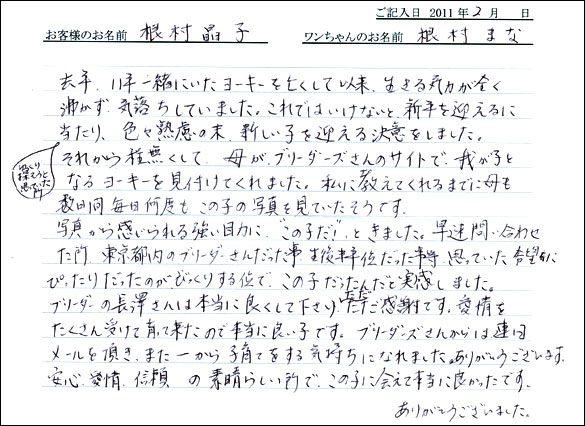 ご記入日 2011年2月 日
お客様のお名前 根村晶子 ワンちゃんのお名前 根村まな
去年、11年一緒にいたヨーキーを亡くして以来、生きる気力が全く
沸かず、気落ちしていました。これではいけないと、新年を迎えるに
当たり、色々熟慮の末、新しい子を迎える決意をしました。
それから程無くして、母が、ブリーダーズさんのサイトで、我が子と
じっくり探そうと思っていた所
なるヨーキーを見付けてくれました。私に教えてくれるまでに母も
数日間、毎日何度も この子の写真を見ていたそうです。
写真から感じられる強い目力に、"この子だ!"ときました。早速問い合わせ
た所、東京都内のブリーダーさんだった事、生後半年位だった事等、思っていた希望に
ぴったりだったのがびっくりする位で、この子だったんだと実感しました。
ブリーダーの長澤さんは本当に良くして下さり、ただただ感謝です。愛情を
たくさん受けて育って来たので本当に良い子です。ブリーダーズさんからは連日
メールを頂き、また一から子育てをする気持ちになれました。ありがとうございます。
安心、愛情、信頼 の素晴らしい所で、この子に会えて本当に良かったです。
ありがとうございました。